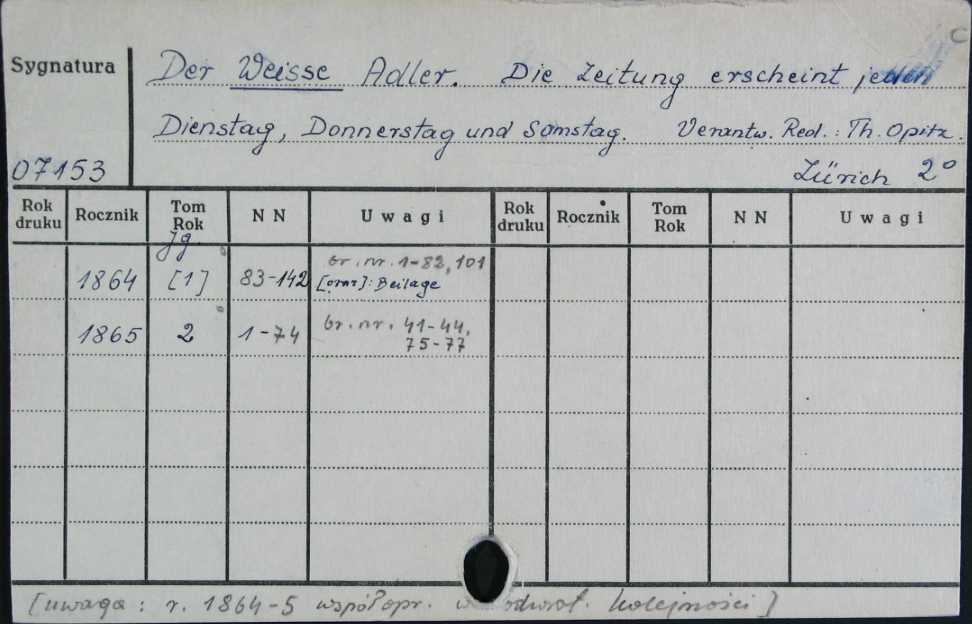 Sygnatura
Der Weisse Adler. Die Zeitung erscheint jeden
Dienstag, Donnerstag und Samstag. Verantw. Red.: Th. Opitz.
07153
Zürich 2°
Rok druku Rocznik Tom Rok NN Uwagi Rok druku Rocznik Tom Rok NN Uwagi
Jg.
br. nr. 1-82, 101
1864 [1] 83-142 [oraz]: Beilage
1865 2 1-74 br. nr. 41-44,
75-77
[uwaga: r. 1864-5 współopr. w odwrot. kolejności]